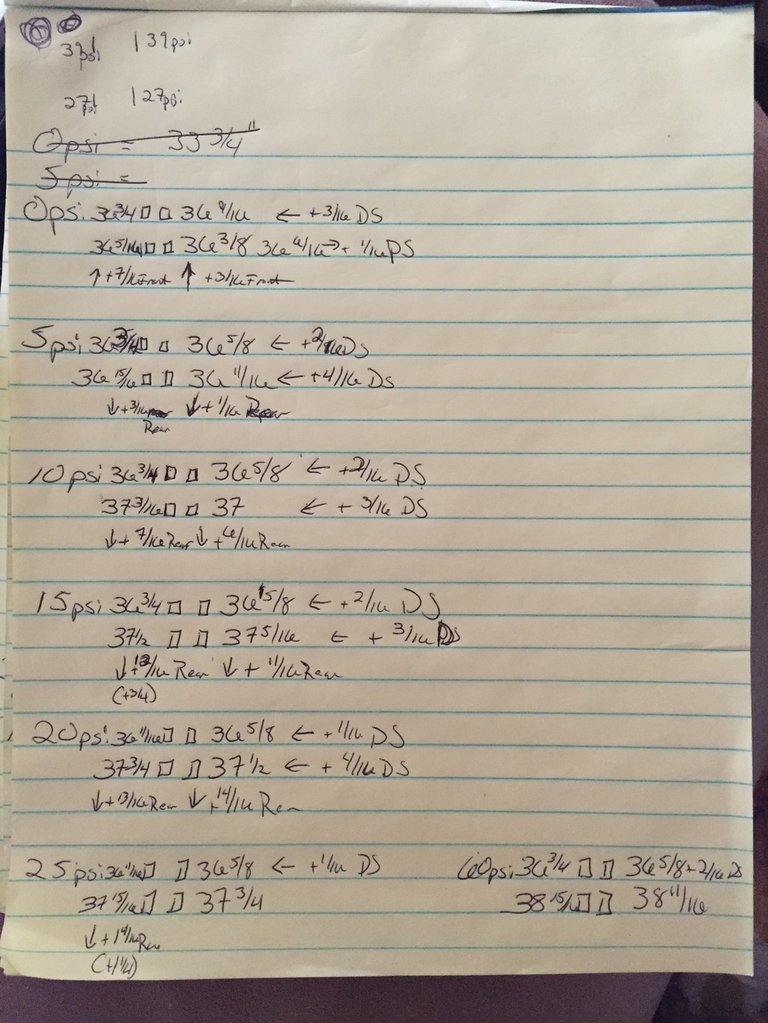 39psi | 39psi
27psi | 27psi
0psi = 33 3/4"
5psi =
0psi 36 3/4 □ □ 36 9/16 ← +3/16 DS
36 5/16 □ □ 36 3/8 36 6/16 → + 1/16 PS
↑ +7/16 Front ↑ +3/16 Front
5psi □ □ 36 5/8 ← +2/16 DS
36 15/16 □ □ 36 11/16 ← +4/16 DS
↓ +3/16 ↓ + 1/16 Rear
Rear
10psi 36 3/4 □ □ 36 5/8 ← +2/16 DS
37 3/16 □ □ 37 ← + 3/16 DS
↓ + 7/16 Rear ↓ + 6/16 Rear
15psi 36 3/4 □ □ 36 5/8 ← +2/16 DS
37 1/2 □ □ 37 5/16 ← + 3/16 DS
↓ +12/16 Rear ↓ + 11/16 Rear
(+3/4)
20psi 36 11/16 □ □ 36 5/8 ← +1/16 DS
37 3/4 □ □ 37 1/2 ← + 4/16 DS
↓ +13/16 Rear ↓ +14/16 Rear
25psi 36 11/16 □ □ 36 5/8 ← +1/16 DS 60psi 36 3/4 □ □ 36 5/8 + 2/16 DS
37 15/16 □ □ 37 3/4 38 15/16 □ □ 38 11/16
↓ + Rear
(+1 1/4)